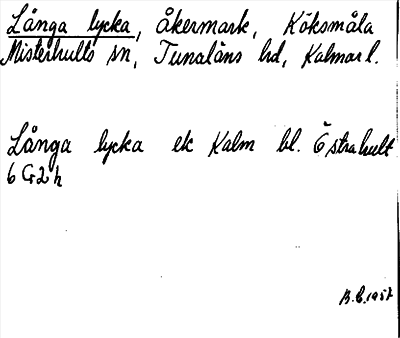 Långa lycka, åkermark, Köksmåla
Misterhults sn, Tunaläns hd, Kalmar l.
Långa lycka ek Kalm bl. Östrahult
6 G2h
B.C. 1957